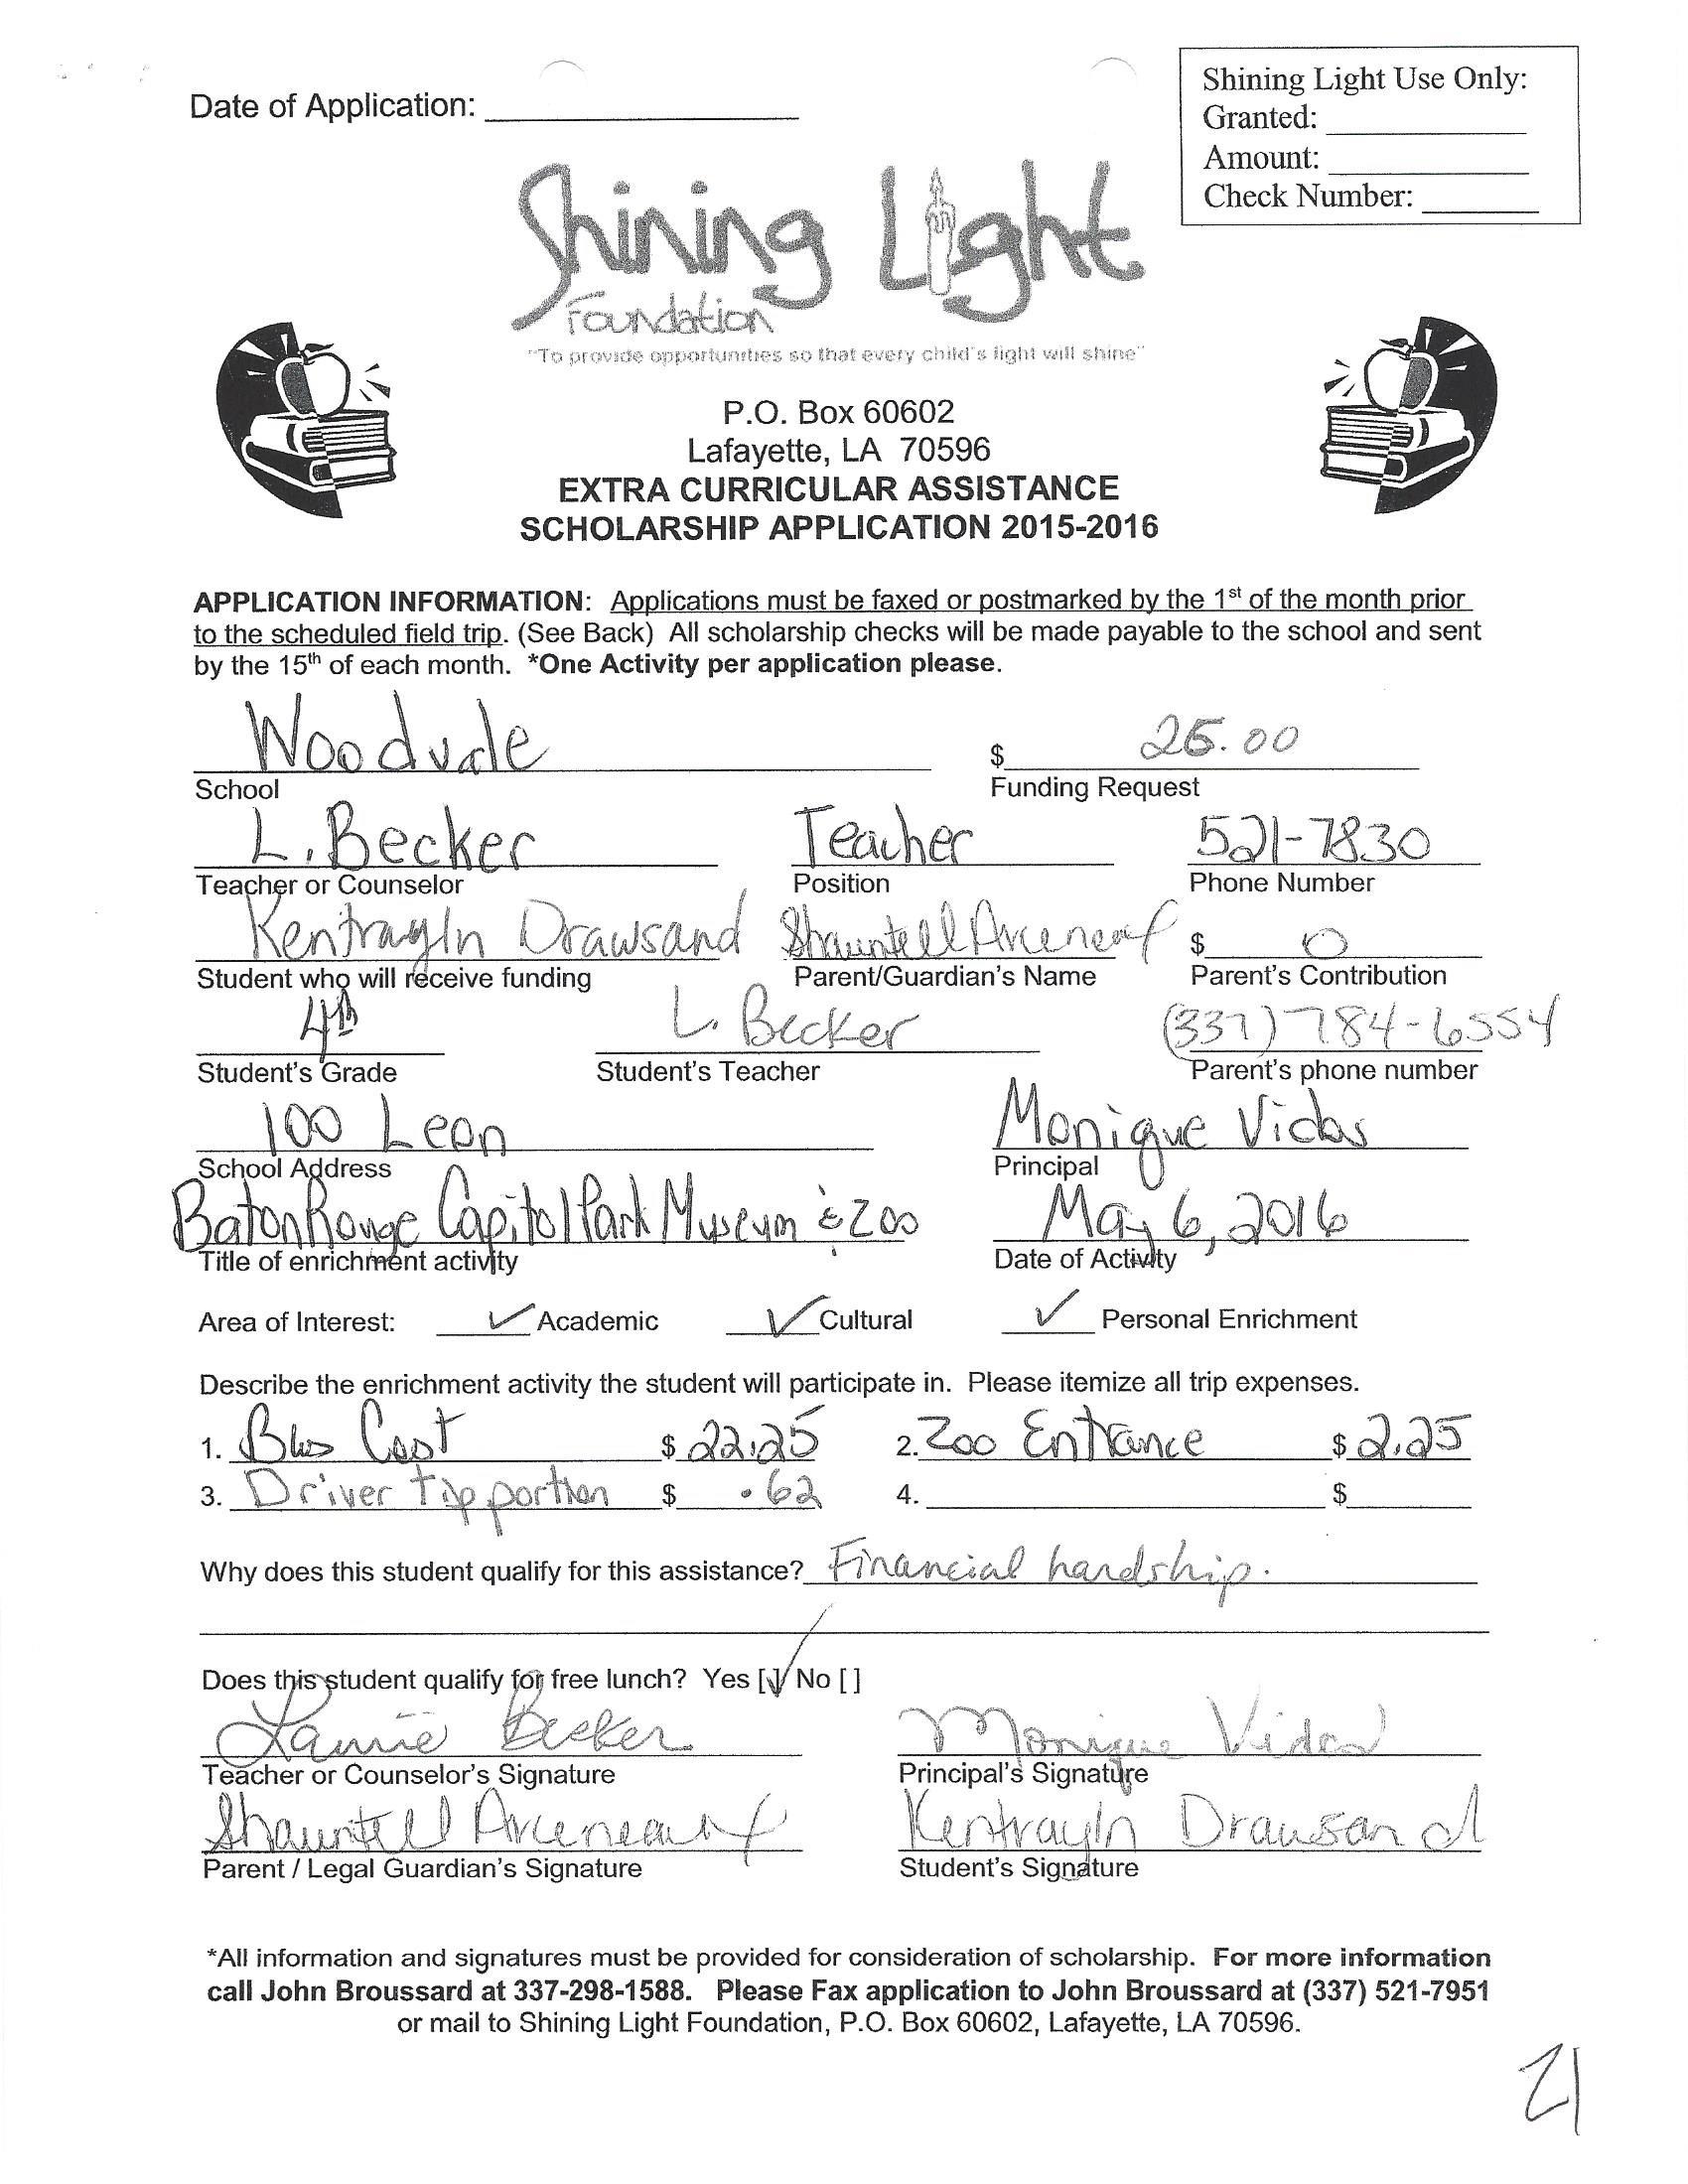 Date of Application:
Shining Light Use Only:
Granted:
Amount:
Check Number:
Shining Light
Foundation
"To provide opportunities so that every child's light will shine"
P.O. Box 60602
Lafayette, LA 70596
EXTRA CURRICULAR ASSISTANCE
SCHOLARSHIP APPLICATION 2015-2016
APPLICATION INFORMATION: Applications must be faxed or postmarked by the 1st of the month prior
to the scheduled field trip. (See Back) All scholarship checks will be made payable to the school and sent
by the 15th of each month. *One Activity per application please.
Woodvale $ 25.00
School Funding Request
L. Becker Teacher 521-7830
Teacher or Counselor Position Phone Number
Kentrayln Drawsand Shauntell Arceneaux $ 0
Student who will receive funding Parent/Guardian's Name Parent's Contribution
4th L. Becker (337) 784-6554
Student's Grade Student's Teacher Parent's phone number
100 Leon Monique Vidos
School Address Principal
Baton Rouge Capitol Park Museum & Zoo May 6, 2016
Title of enrichment activity Date of Activity
Area of Interest: ✓ Academic ✓ Cultural ✓ Personal Enrichment
Describe the enrichment activity the student will participate in. Please itemize all trip expenses.
1. Bus Cost $ 22.25 2. Zoo Entrance $ 2.25
3. Driver tip portion $ .62 4. $
Why does this student qualify for this assistance? Financial hardship.
Does this student qualify for free lunch? Yes [✓] No [ ]
Becker Monique Vidos
Teacher or Counselor's Signature Principal's Signature
Shauntell Arceneaux Kentrayln Drawsand
Parent / Legal Guardian's Signature Student's Signature
*All information and signatures must be provided for consideration of scholarship. For more information
call John Broussard at 337-298-1588. Please Fax application to John Broussard at (337) 521-7951
or mail to Shining Light Foundation, P.O. Box 60602, Lafayette, LA 70596.
21